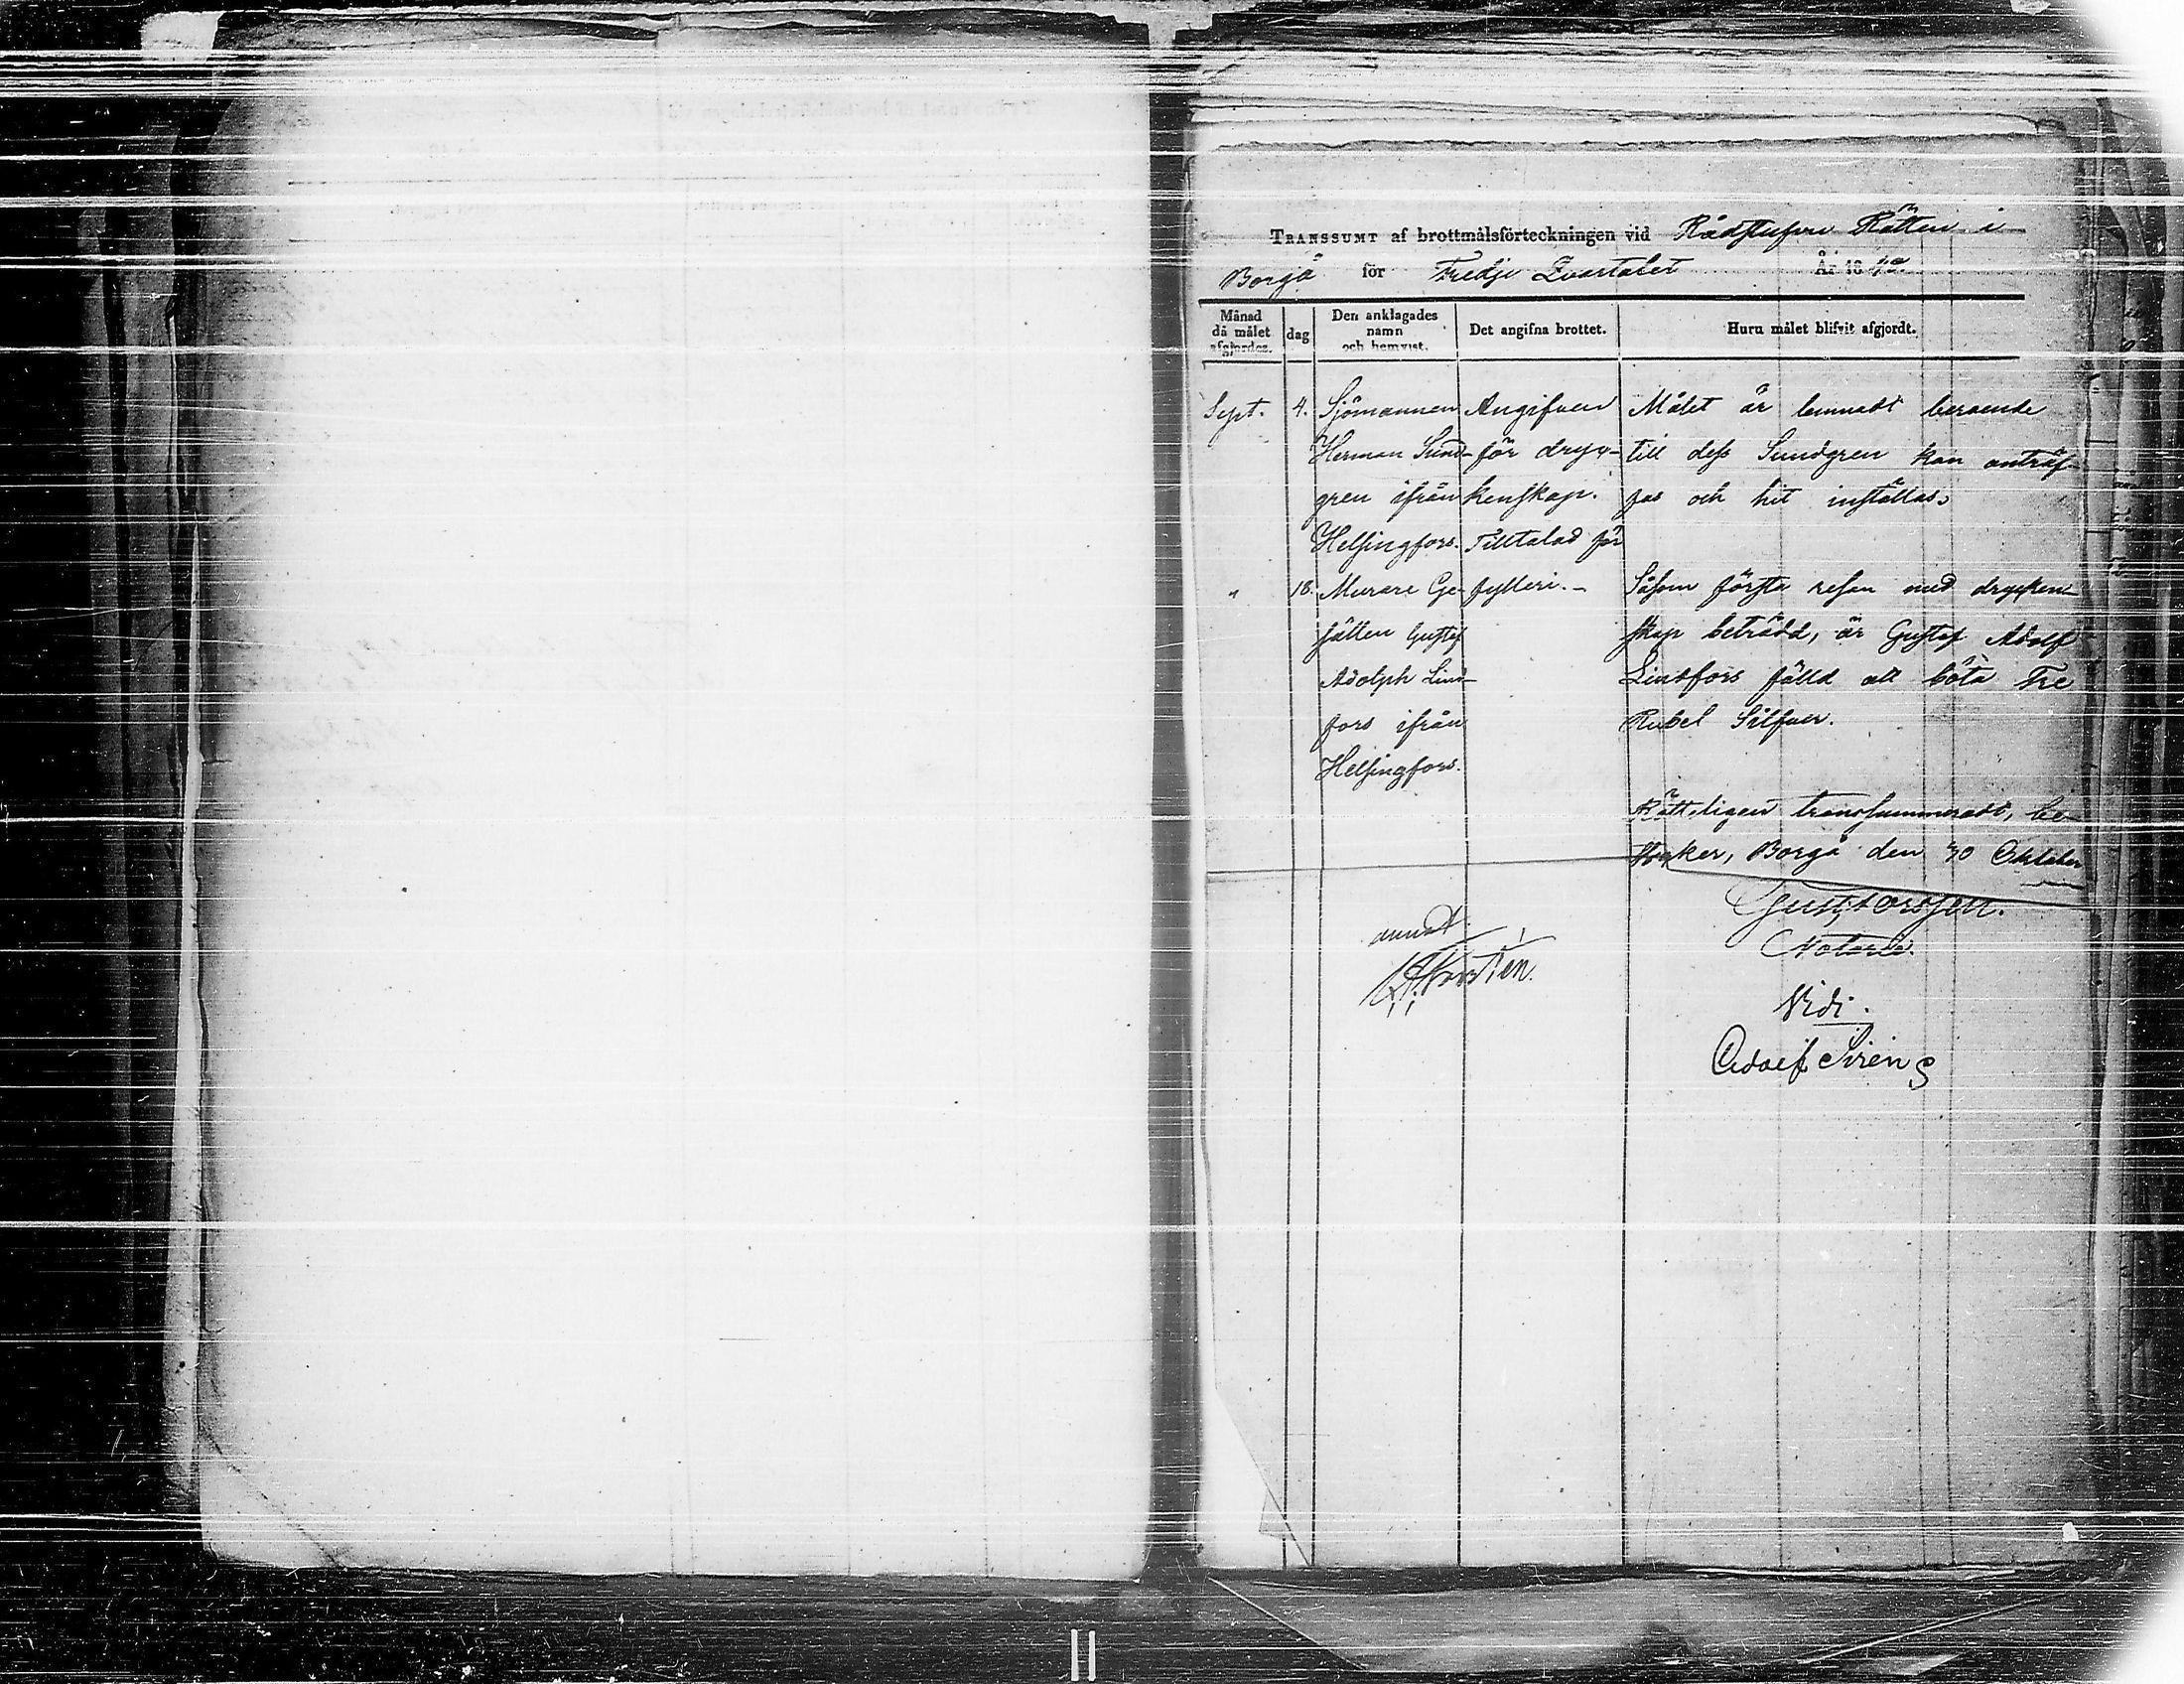 TRANSSUMT af brottmålsförteckningen vid Rådstufvu Rätten i
Borgå för Tredje Qvartalet År 18
Månad då målet afgjordes.
dag
Den anklagades namn och hemvist.
Det angifna brottet.
Huru målet blifvit afgjordt.
Sept. 4. Sjömannen Angifven Målet är lemnadt beroende
Herman Sund- för dryc- till dess Sundgren kan anträf-
gren ifrån kenskap. fas och hit inställas.
Helsingfors. Tilltalad för
" 18. Murare Ge- fylleri.- Såsom första resan med drycken-
sällen Gustaf skap beträdd, är Gustaf Adolf
Adolph Lind- Lindfors fälld att böta Tre
fors ifrån Rubel Silfver.
Helsingfors.
Rätteligen transsummeradt, be-
Borgå den Oktober
Notarie.
Vidi.
Adolf Sirén